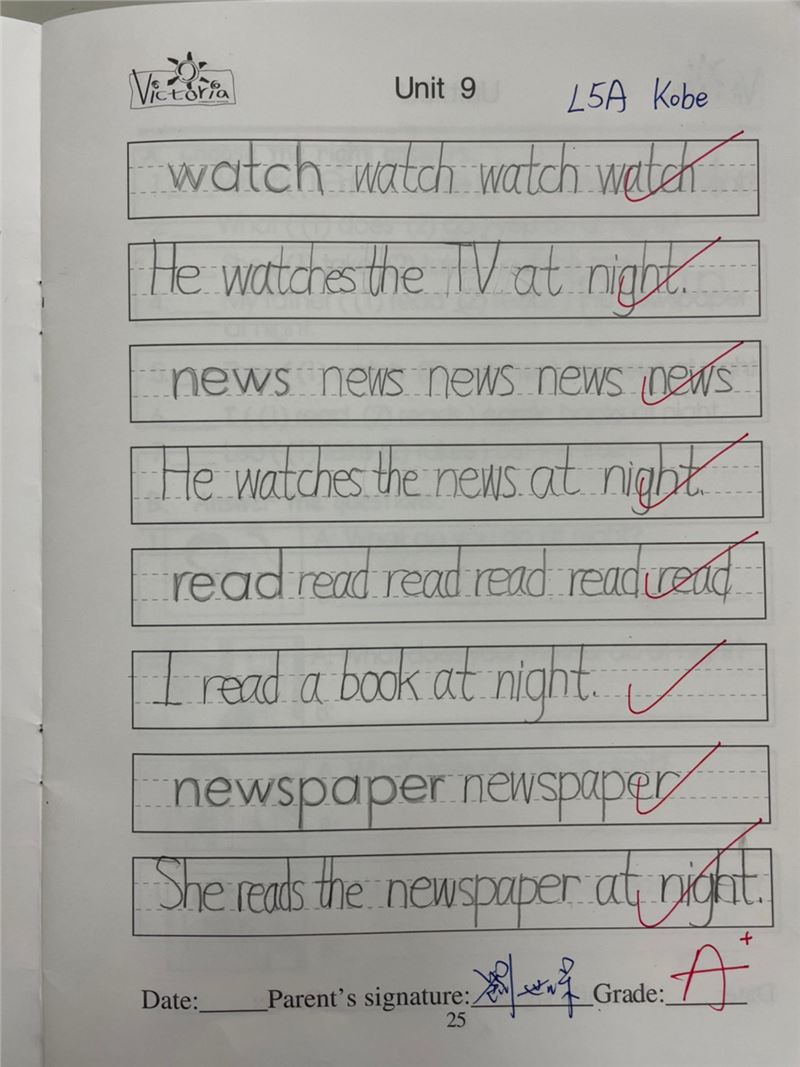 Victoria
Unit 9
L5A Kobe
watch watch watch watch
He watches the TV at night.
news news news news news
He watches the news at night.
read read read read read read
I read a book at night.
newspaper newspaper
She reads the newspaper at night.
Date: Parent's signature: Grade: A+
25